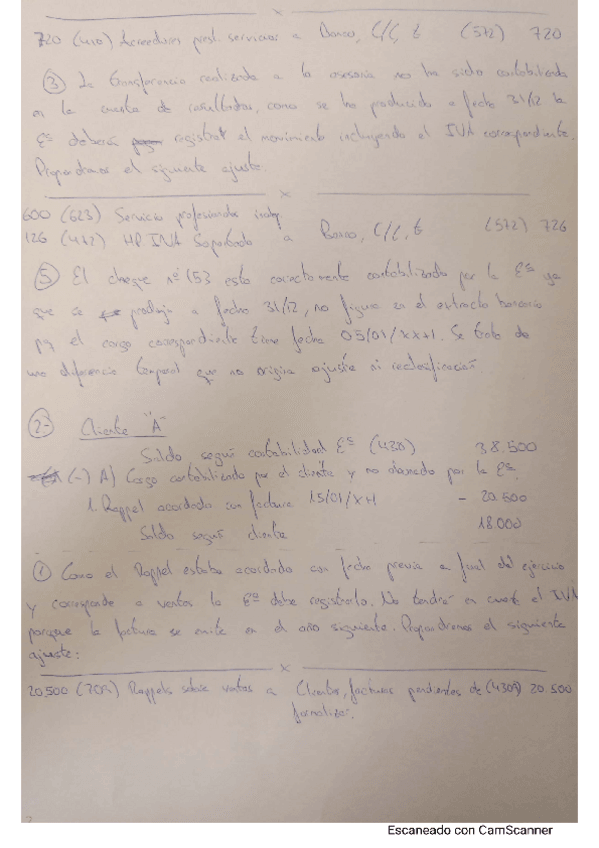 x
720 (410) Acreedores prest. servicios a Banco, C/C, € (572) 720
③ La transferencia realizada a la asesoría no ha sido contabilizada
en la cuenta de resultados, como se ha producido a fecha 31/12 la
Eª deberá registrar el movimiento incluyendo el IVA correspondiente.
Propondremos el siguiente ajuste.
x
600 (623) Servicio profesionales indep.
126 (472) HP IVA Soportado a Banco, C/C, € (572) 726
⑤ El cheque nº 153 está correctamente contabilizado por la Eª ya
que se produjo a fecha 31/12, no figura en el extracto bancario
pq el cargo correspondiente tiene fecha 05/01/XX+1. Se trata de
una diferencia temporal que no origina ajuste ni reclasificación.
2- Cliente "A"
Saldo según contabilidad Eª (430) 38.500
(-) A) Cargo contabilizado por el cliente y no abonado por la Eª.
1. Rappel acordado con factura 15/01/X+1 - 20.500
Saldo según cliente 18.000
① Como el Rappel estaba acordado con fecha previa a final del ejercicio
y corresponde a ventas la Eª debe registrarlo. No tendrá en cuenta el IVA
porque la factura se emite en el año siguiente. Propondremos el siguiente
ajuste:
x
20.500 (709) Rappels sobre ventas a Clientes, facturas pendientes de (4309) 20.500
formalizar.
Escaneado con CamScanner